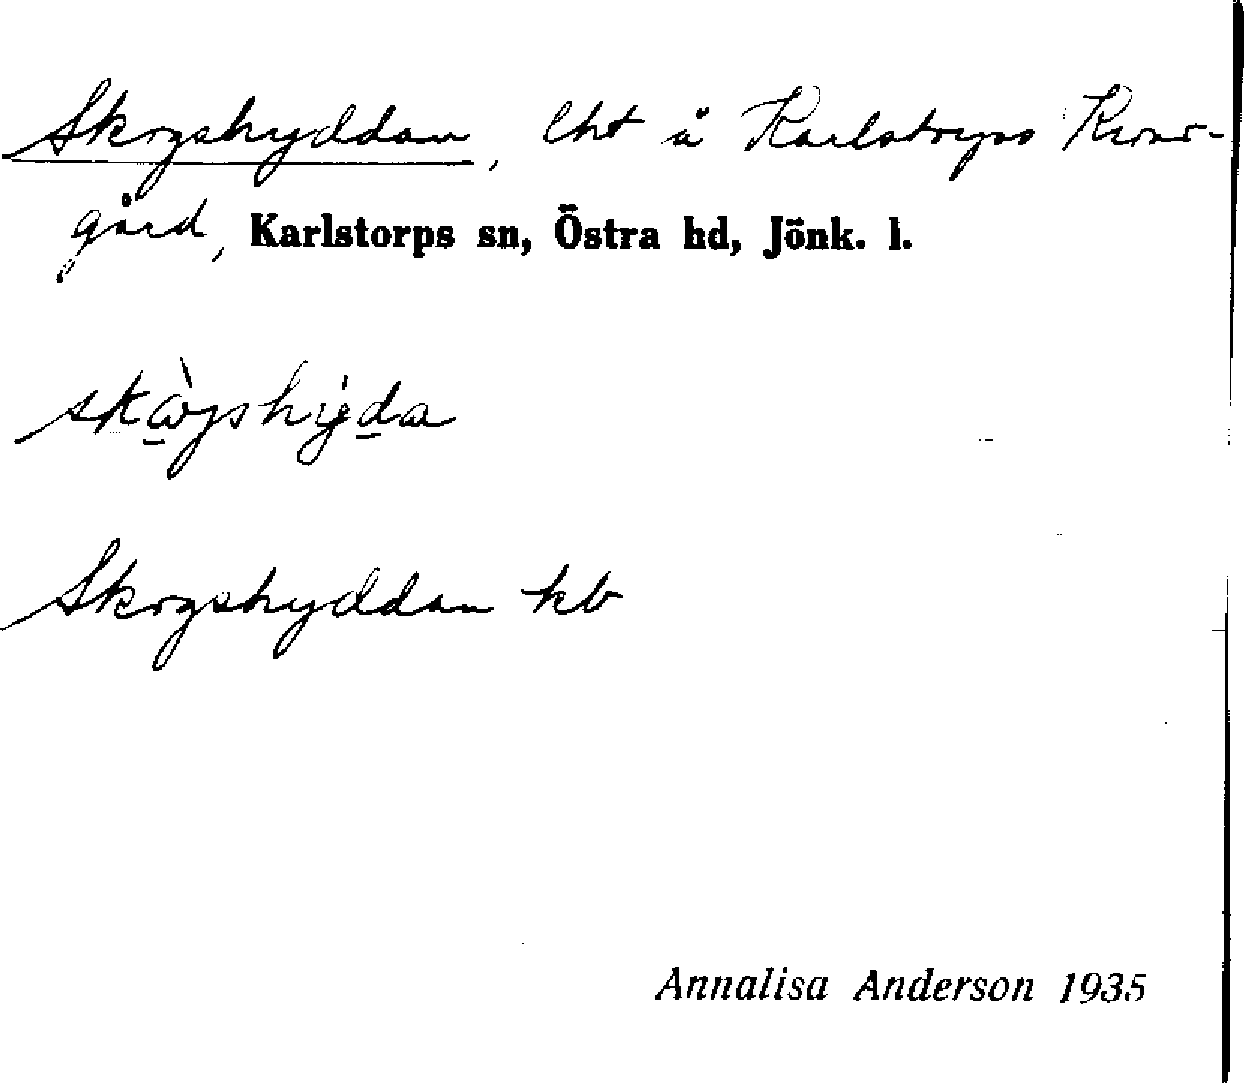 Skogshyddan, lht å Karlstorps Kvar-
gård, Karlstorps sn, Östra hd, Jönk. l.
Skogshyddan kb
Annalisa Anderson 1935